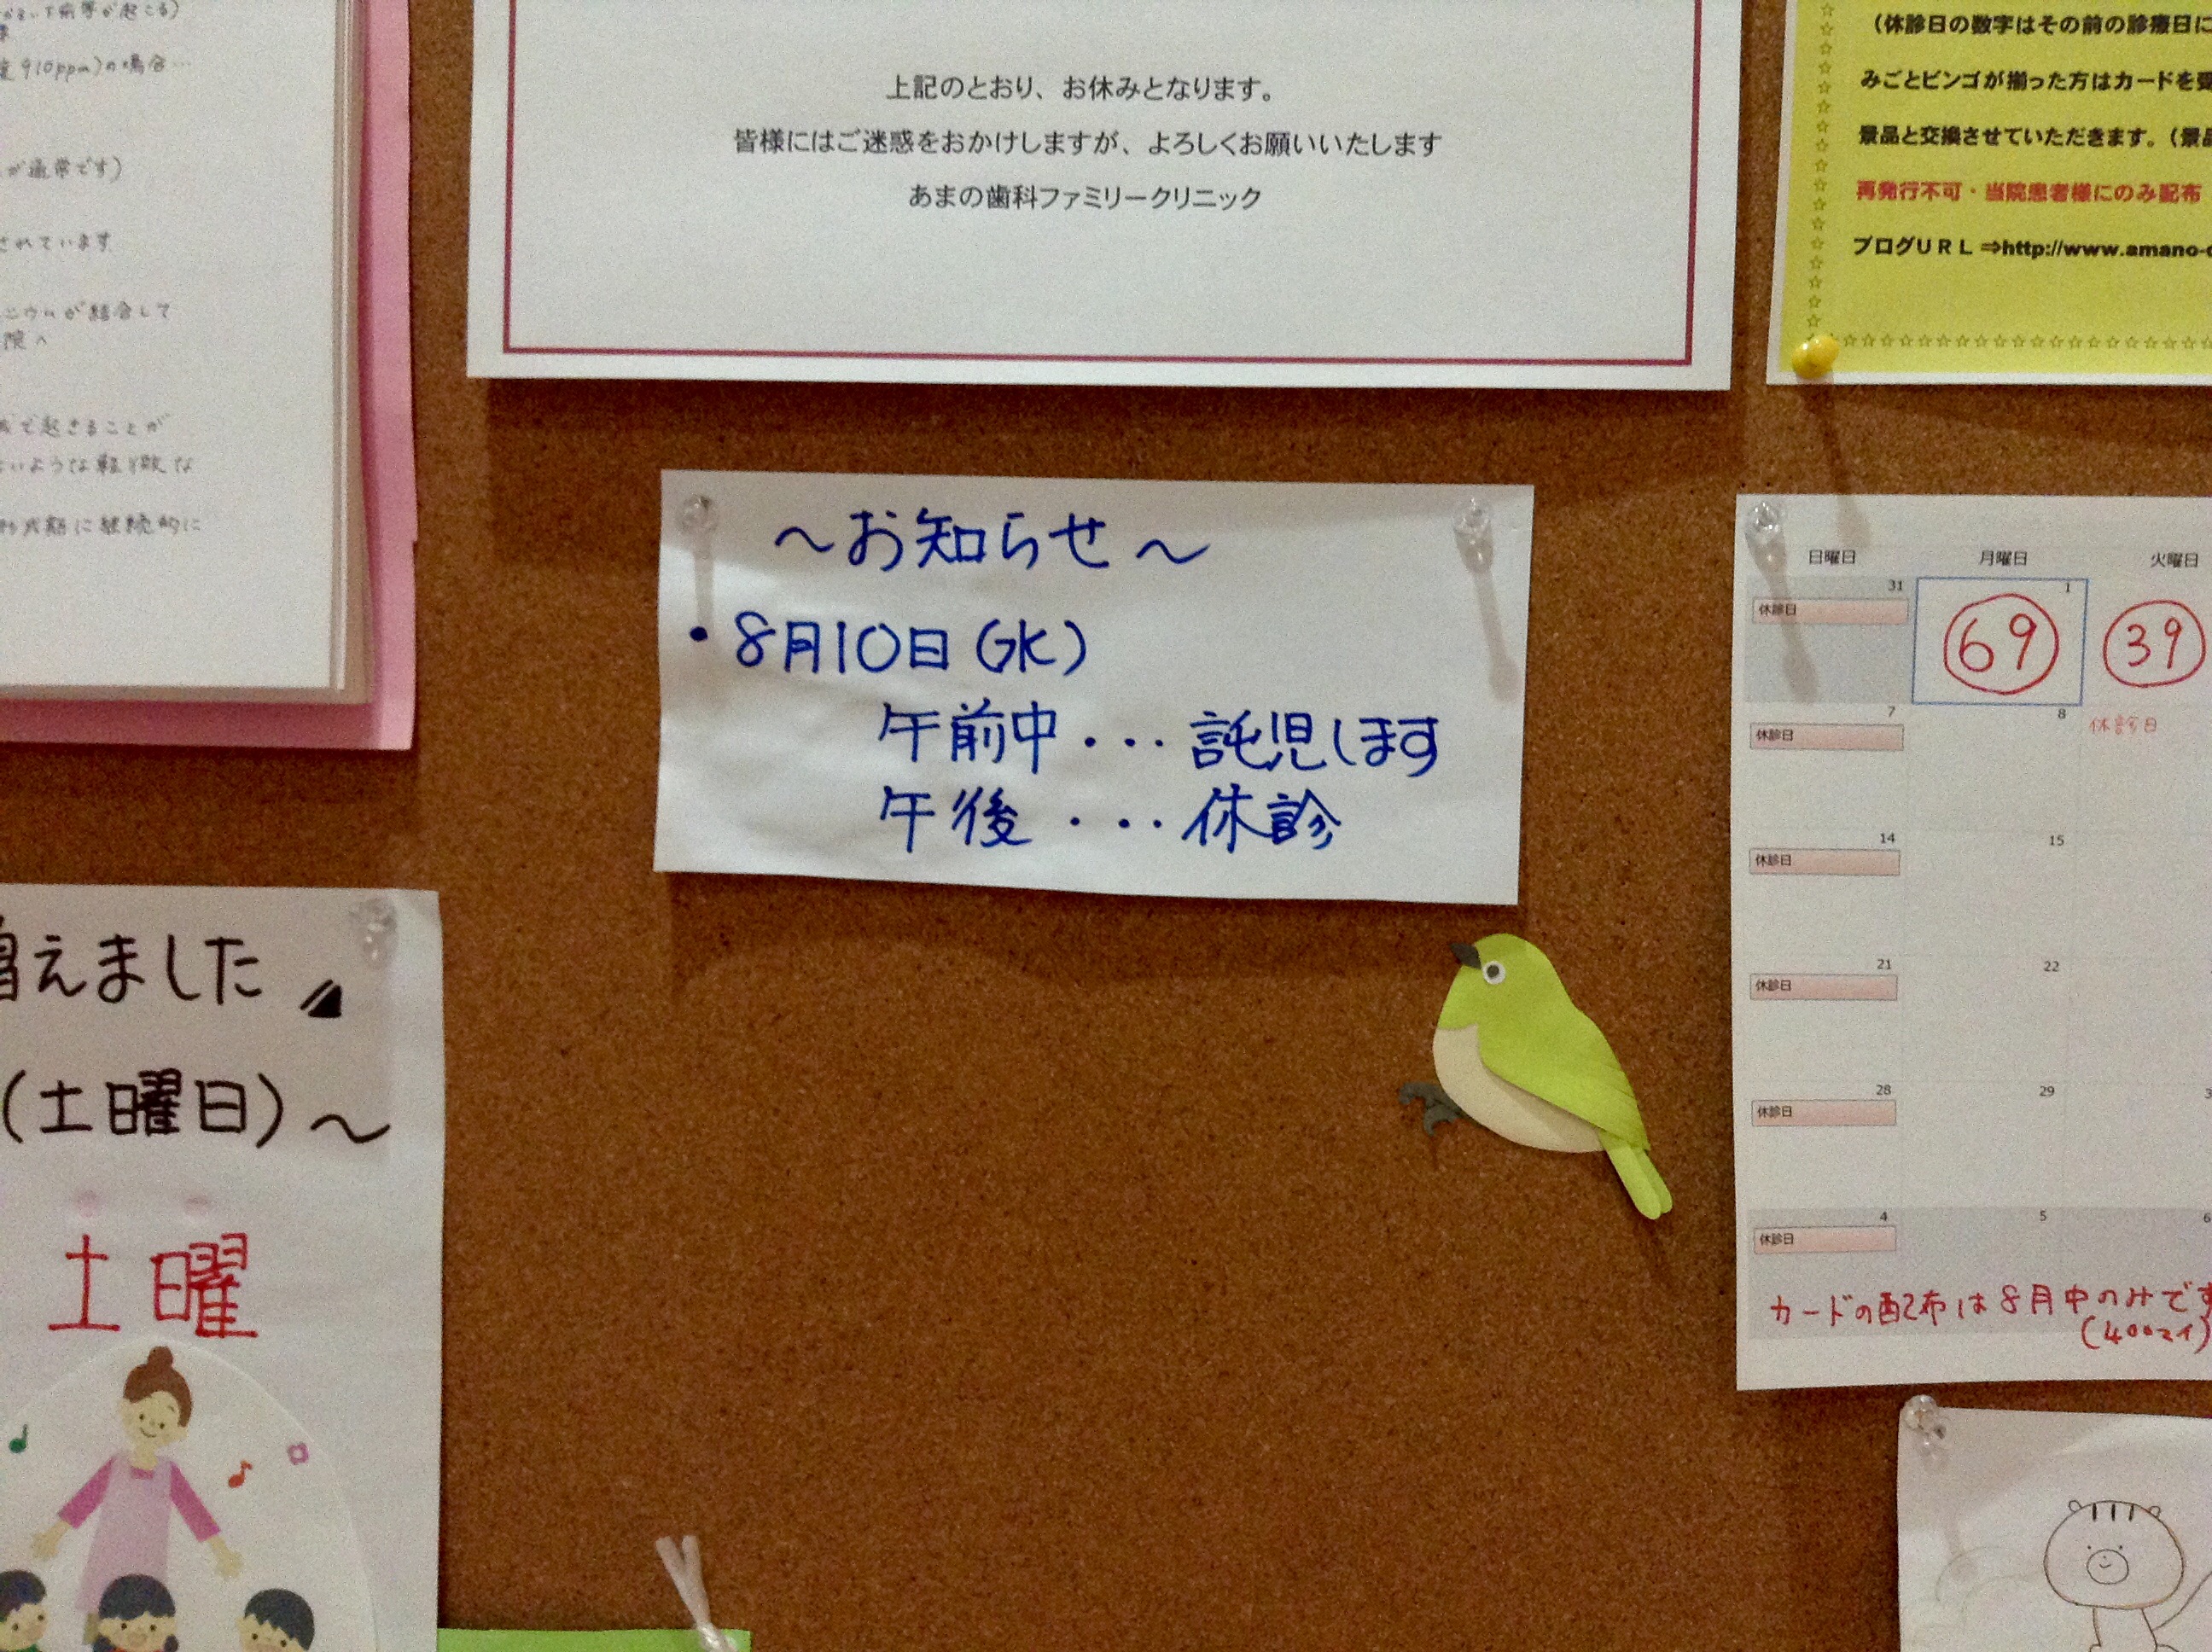 910ppm)の場合…
が通常です)
されています
ニウムが結合して
院へ
で起きることが
いような
期に継続的に
上記のとおり、お休みとなります。
皆様にはご迷惑をおかけしますが、よろしくお願いいたします
あまの歯科ファミリークリニック
(休診日の数字はその前の診療日に
みごとビンゴが揃った方はカードを受
景品と交換させていただきます。(景品
再発行不可・当院患者様にのみ配布
ブログURL⇒http://www.amano-
～お知らせ～
・8月10日(水)
午前中・・・託児します
午後・・・休診
日曜日 月曜日 火曜日
31 1
休診日 69 39
7 8 休診日
休診日
14 15
休診日
21 22
休診日
28 29
休診日
4 5 6
休診日
カードの配布は8月中のみです
(400マイ)
増えました
(土曜日)～
土曜